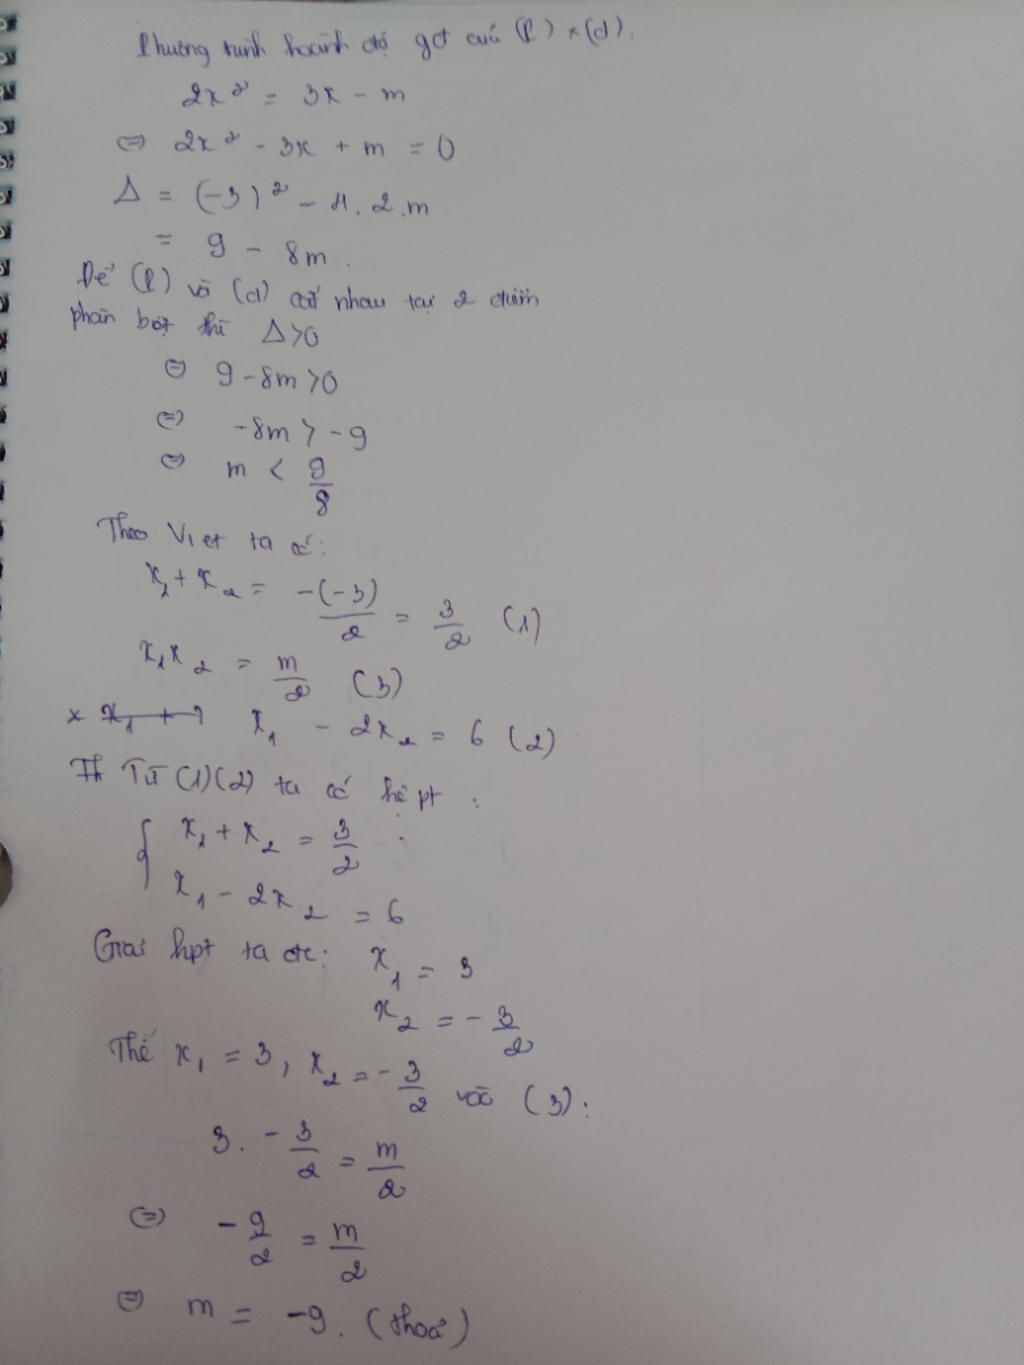 Phương trình hoành độ gđ của (P) và (d):
2x² = 3x - m
⇔ 2x² - 3x + m = 0
Δ = (-3)² - 4.2.m
= 9 - 8m.
Để (P) và (d) cắt nhau tại 2 điểm
phân biệt thì Δ>0
⇔ 9 - 8m > 0
⇔ -8m > -9
⇔ m < 9/8
Theo Viet ta có:
x₁ + x₂ = -(-3)/2 = 3/2 (1)
x₁x₂ = m/2 (3)
x₁ - 2x₂ = 6 (2)
Từ (1)(2) ta có hệ pt:
{ x₁ + x₂ = 3/2
x₁ - 2x₂ = 6
Giải hpt ta đc: x₁ = 3
x₂ = -3/2
Thế x₁ = 3, x₂ = -3/2 vào (3):
3. -3/2 = m/2
⇔ -9/2 = m/2
⇔ m = -9. (thoả)